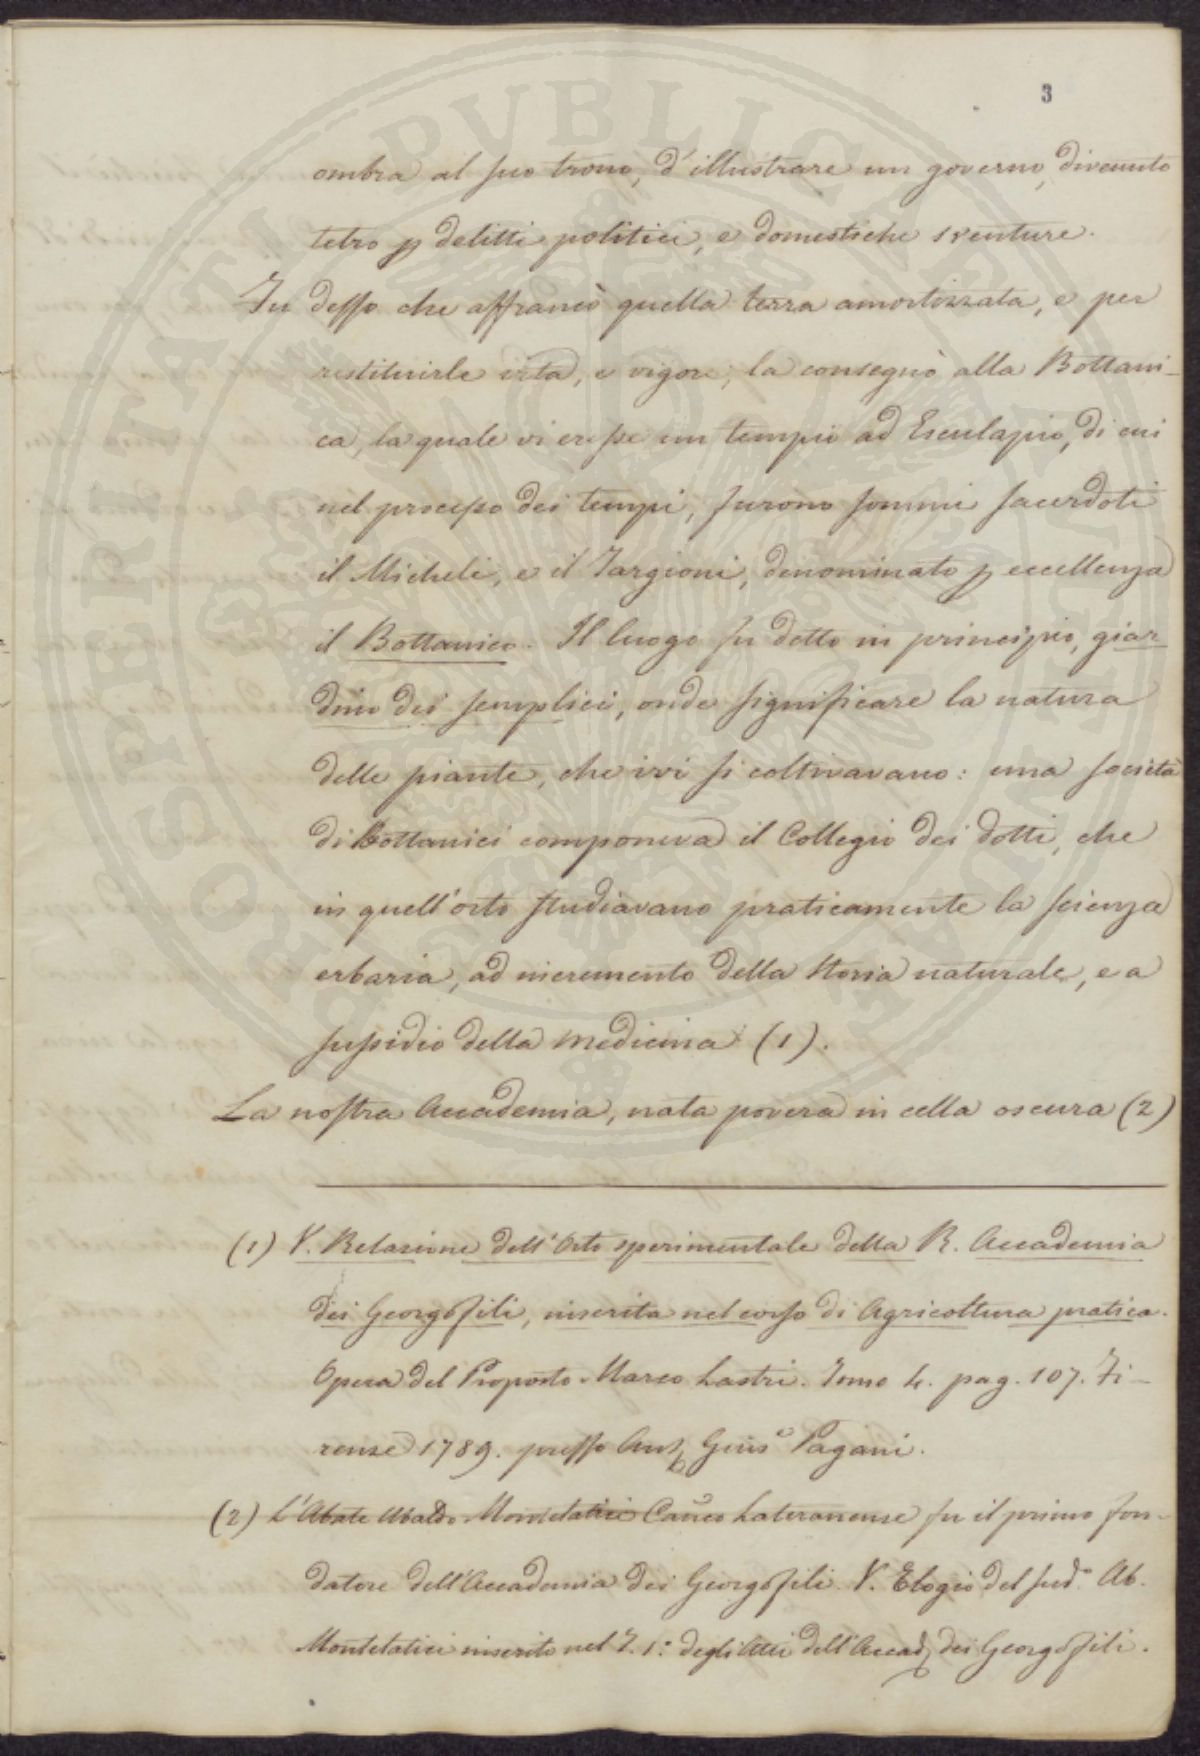 3
ombra al suo trono, d'illustrare un governo, divenuto
tetro p delitti politici, e domestiche sventure.
Fu desso che affrancò quella terra amortizzata, e per
restituirle vita, e vigore, la consegnò alla Bottani-
ca, la quale vi eresse un tempio ad Esculapio, di cui
nel processo dei tempi, furono sommi sacerdoti
il Micheli, e il Targioni, denominato p eccellenza
il Bottanico. Il luogo fu detto in principio, giar-
dino dei semplici, onde significare la natura
delle piante, che ivi si coltivavano: una società
di Bottanici componeva il Collegio dei dotti, che
in quell'orto studiavano praticamente la scienza
erbaria, ad incremento della storia naturale, e a
sussidio della medicina (1).
La nostra Accademia, nata povera in cella oscura (2)
(1) V. Relazione dell'Orto sperimentale della R. Accademia
dei Georgofili, inserita nel corso di Agricoltura pratica.
Opera del Proposto Marco Lastri. Tomo 4. pag. 107. Fi-
renze 1789. presso Ant Gius.e Pagani.
(2) L'Abate Ubaldo Montelatici Can.co Lateranense fu il primo fon-
datore dell'Accademia dei Georgofili. V. Elogio del sud.o Ab.
Montelatici inserito nel T. 1.o degli Atti dell'Accad dei Georgofili.
PROSPERITATI PUBLICAE AUGENDAE